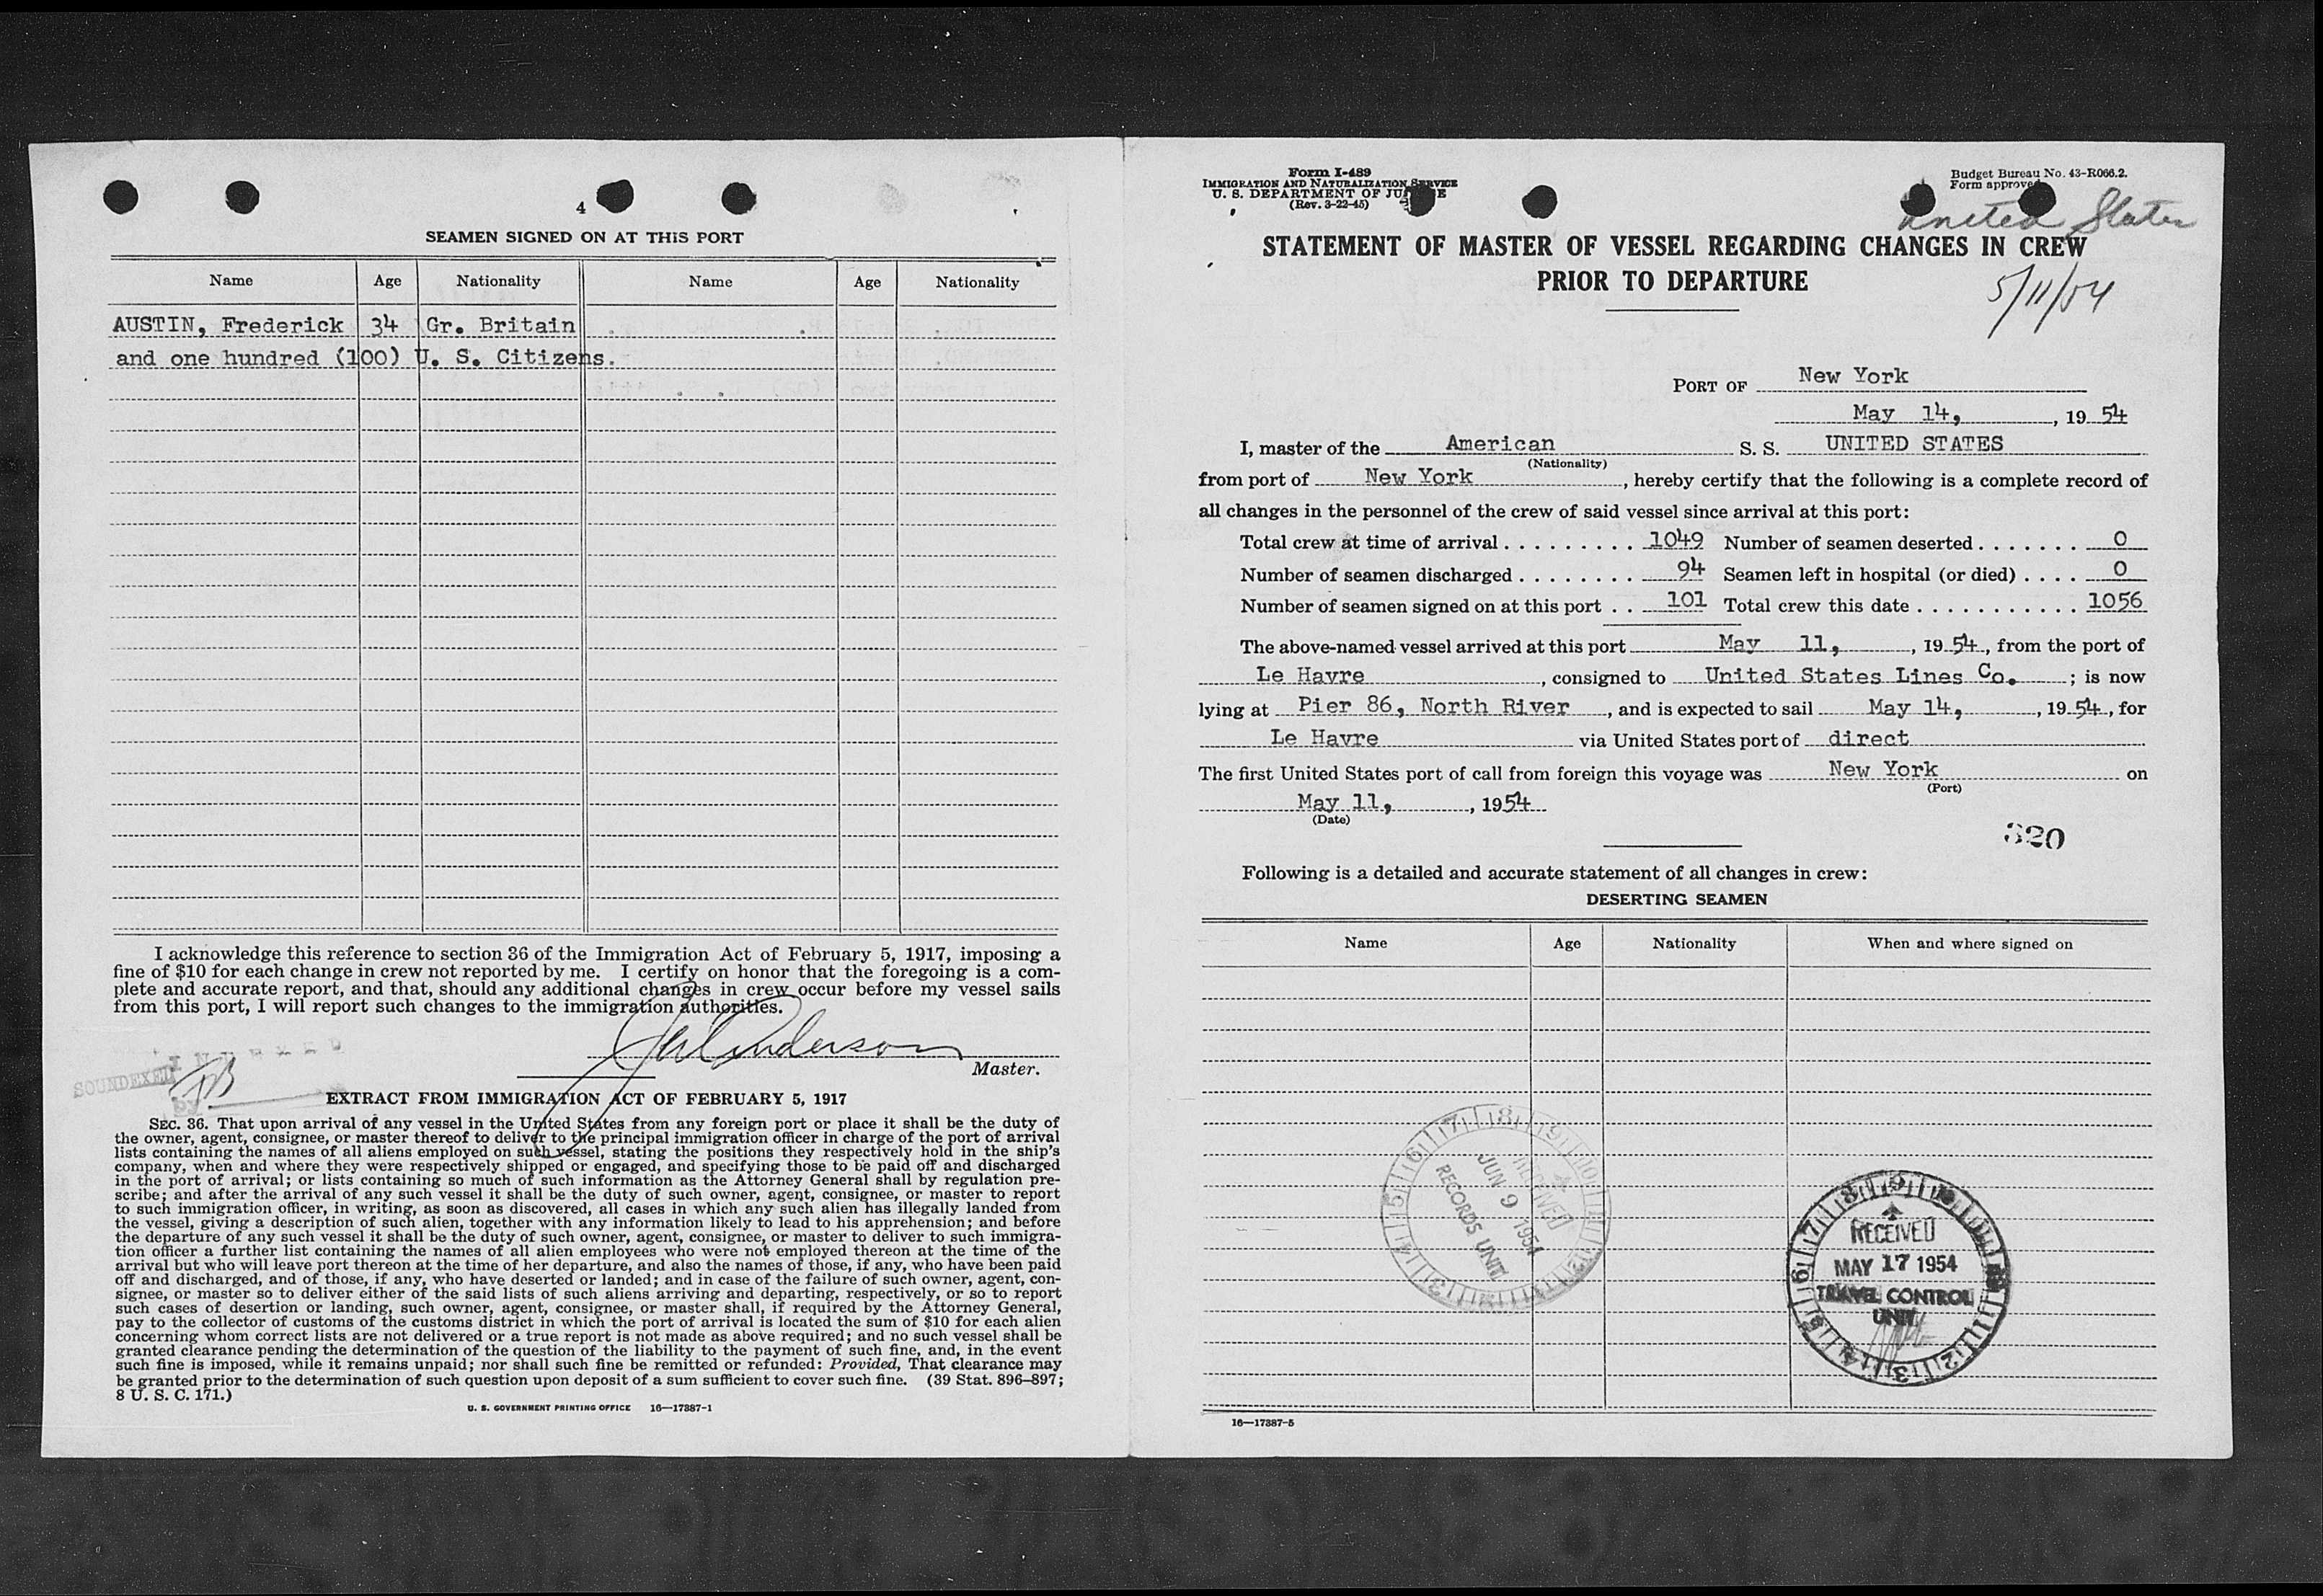 4
SEAMEN SIGNED ON AT THIS PORT
Name Age Nationality Name Age Nationality
AUSTIN, Frederick 34 Gr. Britain
and one hundred (100) U. S. Citizens.
I acknowledge this reference to section 36 of the Immigration Act of February 5, 1917, imposing a
fine of $10 for each change in crew not reported by me. I certify on honor that the foregoing is a com-
plete and accurate report, and that, should any additional changes in crew occur before my vessel sails
from this port, I will report such changes to the immigration authorities.
Anderson
Master.
INDEXED
SOUNDEXED
by
EXTRACT FROM IMMIGRATION ACT OF FEBRUARY 5, 1917
SEC. 36. That upon arrival of any vessel in the United States from any foreign port or place it shall be the duty of
the owner, agent, consignee, or master thereof to deliver to the principal immigration officer in charge of the port of arrival
lists containing the names of all aliens employed on such vessel, stating the positions they respectively hold in the ship's
company, when and where they were respectively shipped or engaged, and specifying those to be paid off and discharged
in the port of arrival; or lists containing so much of such information as the Attorney General shall by regulation pre-
scribe; and after the arrival of any such vessel it shall be the duty of such owner, agent, consignee, or master to report
to such immigration officer, in writing, as soon as discovered, all cases in which any such alien has illegally landed from
the vessel, giving a description of such alien, together with any information likely to lead to his apprehension; and before
the departure of any such vessel it shall be the duty of such owner, agent, consignee, or master to deliver to such immigra-
tion officer a further list containing the names of all alien employees who were not employed thereon at the time of the
arrival but who will leave port thereon at the time of her departure, and also the names of those, if any, who have been paid
off and discharged, and of those, if any, who have deserted or landed; and in case of the failure of such owner, agent, con-
signee, or master so to deliver either of the said lists of such aliens arriving and departing, respectively, or so to report
such cases of desertion or landing, such owner, agent, consignee, or master shall, if required by the Attorney General,
pay to the collector of customs of the customs district in which the port of arrival is located the sum of $10 for each alien
concerning whom correct lists are not delivered or a true report is not made as above required; and no such vessel shall be
granted clearance pending the determination of the question of the liability to the payment of such fine, and, in the event
such fine is imposed, while it remains unpaid; nor shall such fine be remitted or refunded: Provided, That clearance may
be granted prior to the determination of such question upon deposit of a sum sufficient to cover such fine. (39 Stat. 896–897;
8 U. S. C. 171.)
U. S. GOVERNMENT PRINTING OFFICE 16—17387-1
Form I-489
IMMIGRATION AND NATURALIZATION SERVICE
U. S. DEPARTMENT OF JUSTICE
(Rev. 3-22-45)
Budget Bureau No. 43-R066.2.
Form approved
United States
STATEMENT OF MASTER OF VESSEL REGARDING CHANGES IN CREW
PRIOR TO DEPARTURE
5/11/54
PORT OF New York
May 14, , 19 54
I, master of the American S. S. UNITED STATES
(Nationality)
from port of New York , hereby certify that the following is a complete record of
all changes in the personnel of the crew of said vessel since arrival at this port:
Total crew at time of arrival . . . . . . . . . . 1049 Number of seamen deserted . . . . . . . 0
Number of seamen discharged . . . . . . . . 94 Seamen left in hospital (or died) . . . . 0
Number of seamen signed on at this port . . 101 Total crew this date . . . . . . . . . . . 1056
The above-named vessel arrived at this port May 11, , 19 54, from the port of
Le Havre , consigned to United States Lines Co. ; is now
lying at Pier 86, North River , and is expected to sail May 14, , 19 54, for
Le Havre via United States port of direct
The first United States port of call from foreign this voyage was New York on
(Port)
May 11, , 1954
(Date)
320
Following is a detailed and accurate statement of all changes in crew:
DESERTING SEAMEN
Name Age Nationality When and where signed on
RECEIVED
JUN 9 1954
RECORDS UNIT
RECEIVED
MAY 17 1954
TRAVEL CONTROL
UNIT
16—17387-5